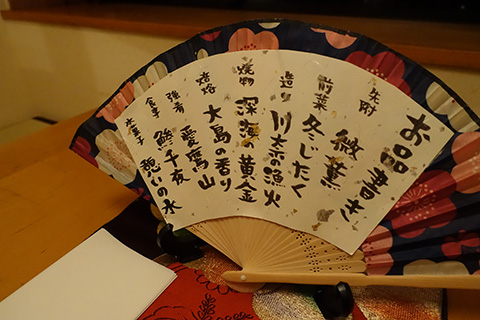 お品書き
先附 微薫
前菜 冬じたく
造り 川奈の漁火
焼物 深海の黄金
焙烙 大島の香り
強肴 愛鷹山
食事 鯵千夜
水菓子 憩いの水